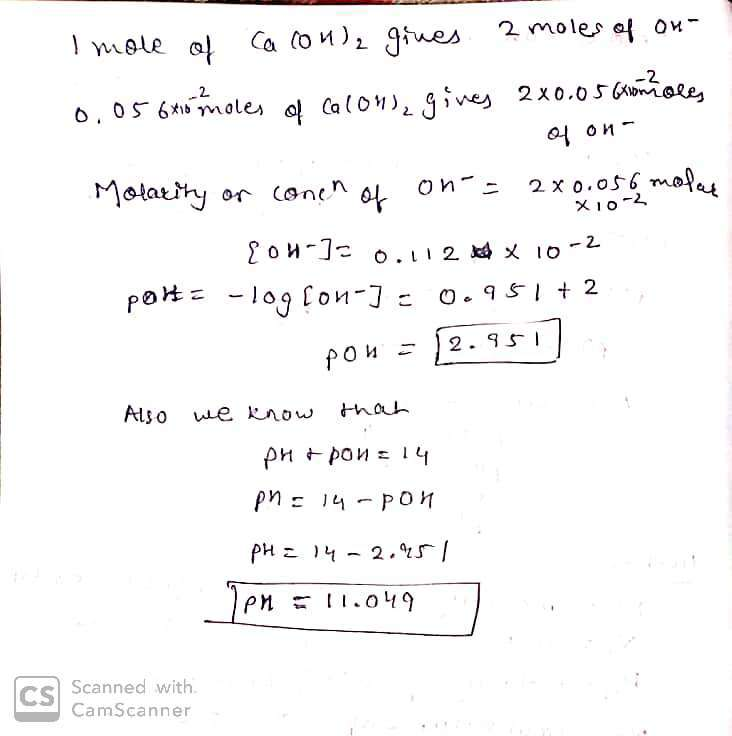 1 mole of Ca(OH)₂ gives 2 moles of OH⁻
0.056×10⁻² moles of Ca(OH)₂ gives 2×0.056×10⁻² moles
of OH⁻
Molarity or concn of OH⁻ = 2×0.056 molar
×10⁻²
[OH⁻] = 0.112 × 10⁻²
pOH = -log[OH⁻] = 0.951 + 2
pOH = 2.951
Also we know that
pH + pOH = 14
pH = 14 - pOH
pH = 14 - 2.951
pH = 11.049
CS Scanned with
CamScanner